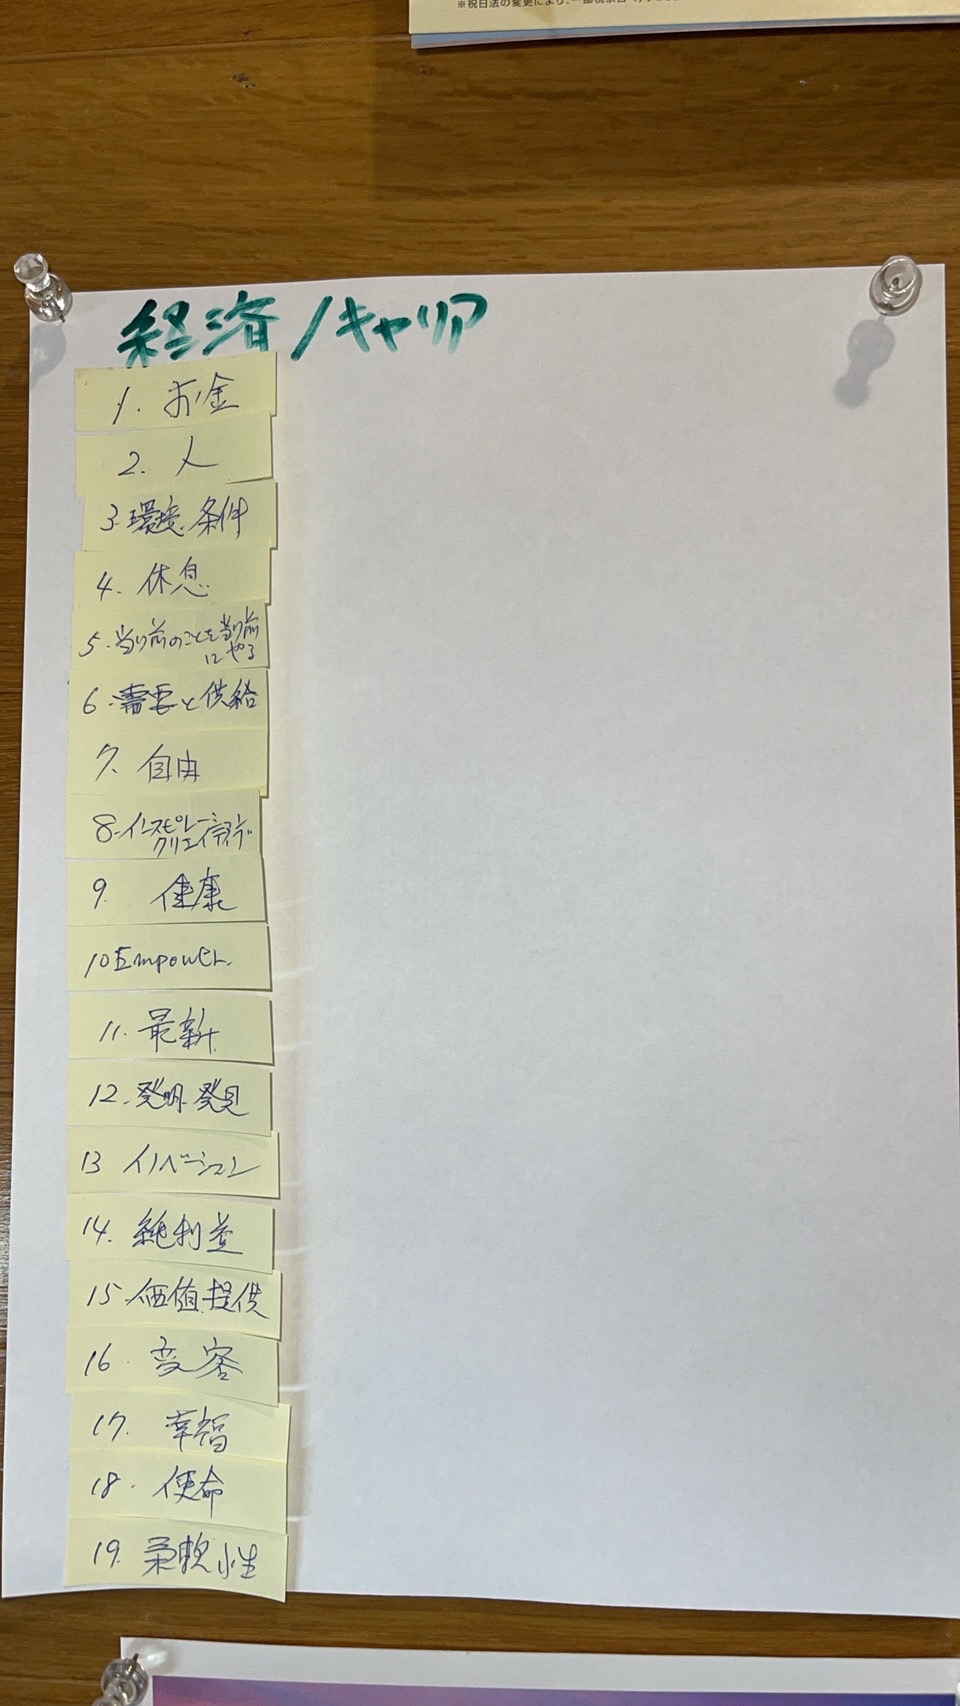 ※祝日法の変更により、一部祝祭日・行事
経済/キャリア
1. お金
2. 人
3. 環境.条件
4. 休息.
5. 当り前のことを当り前
にやる
6. 需要と供給
7. 自由
8. インスピレーション
クリエイティブ
9. 健康
10 Empower.
11. 最新
12. 発明.発見
13 イノベーション
14. 純利益
15. 価値.提供
16. 変容
17. 幸福
18. 使命
19. 柔軟性